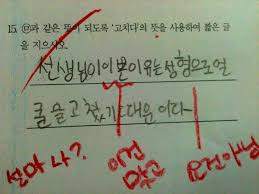 15. ㉤과 같은 뜻이 되도록 '고치다'의 뜻을 사용하여 짧은 글
을 지으시오.
선생님이 이본이유는성형으로얼
굴을고쳤기때문이다
설마 나?
이건
맞고
요건아님